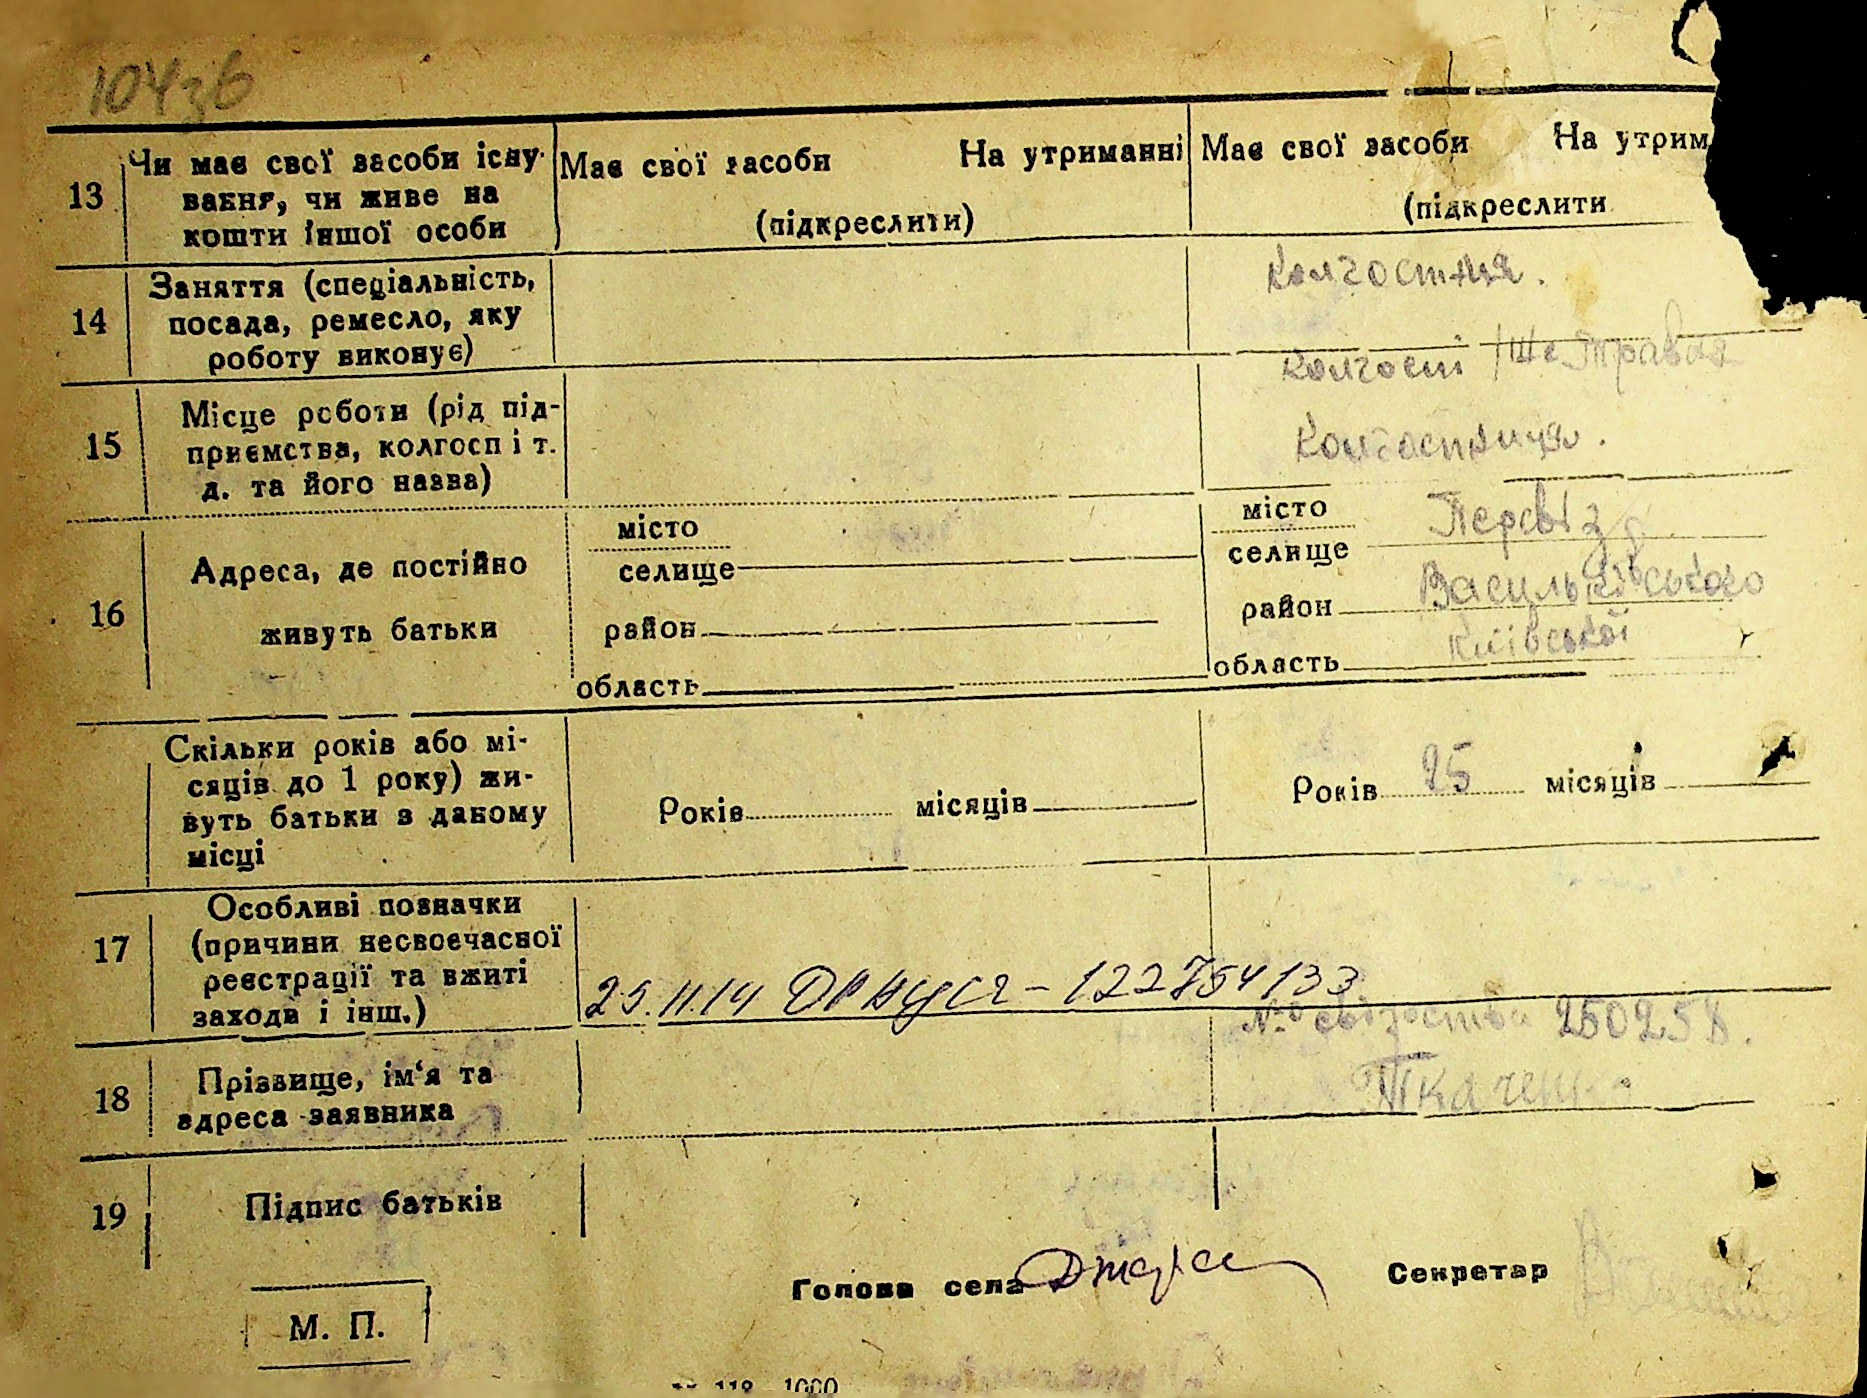 104зв
13
Чи має свої засоби існу-
вання, чи живе на
кошти іншої особи
Має свої засоби На утриманні
(підкреслити)
Має свої засоби На утрим
(підкреслити
14
Заняття (спеціальність,
посада, ремесло, яку
роботу виконує)
Колгоспниця.
15
Місце роботи (рід під-
приємства, колгосп і т.
д. та його назва)
Колгосп 1ше Травня
Колгоспниця.
16
Адреса, де постійно
живуть батьки
місто
селище
район
область
місто
селище Перевіз
район Васильківського
область Київської
Скільки років або мі-
сяців до 1 року) жи-
вуть батьки в даному
місці
Років місяців
Років 25 місяців
17
Особливі позначки
(причини несвоєчасної
реєстрації та вжиті
заходи і інш.)
25.11.14 122754133
№ свідоства 250258.
18
Прізвище, ім'я та
адреса заявника
Ткаченко
19
Підпис батьків
Голова села
Секретар
М. П.
118 1000